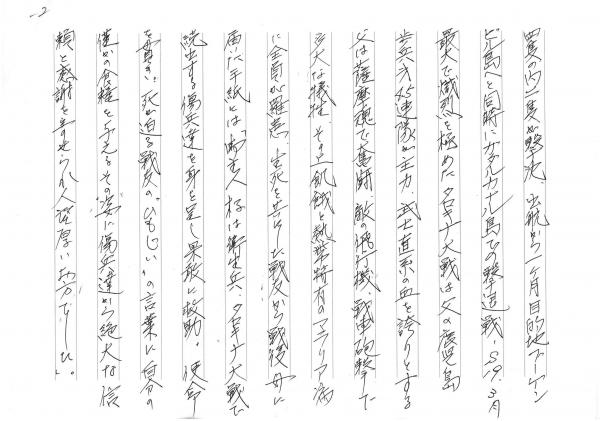 -2
四隻の内二隻が撃沈、出航から一ヶ月目的地ブーゲン
ビル島へと同時にガダルカナル島での撃退戦、S19.3月
最大で熾烈を極めたタロキナ大戦は父の鹿児島
歩兵第45連隊が主力、武士直系の血を誇りとする
父は薩摩魂で奮闘 敵の飛行機、戦車砲撃で
多大な犠牲、その上飢餓と熱帯特有のマラリア病
に全員が罹患、生死を共にした戦友から戦後母に
届いた手紙には「御主人様は衛生兵、タロキナ大戦で
続出する傷兵達を身を呈し果敢に救助。使命
を貫き、死が迫る戦友の"ひもじい"の言葉に自分の
僅かの食糧を与えるその"姿"に傷兵達から絶大な信
頼と感謝を寄せられ人望厚いお方でした」。